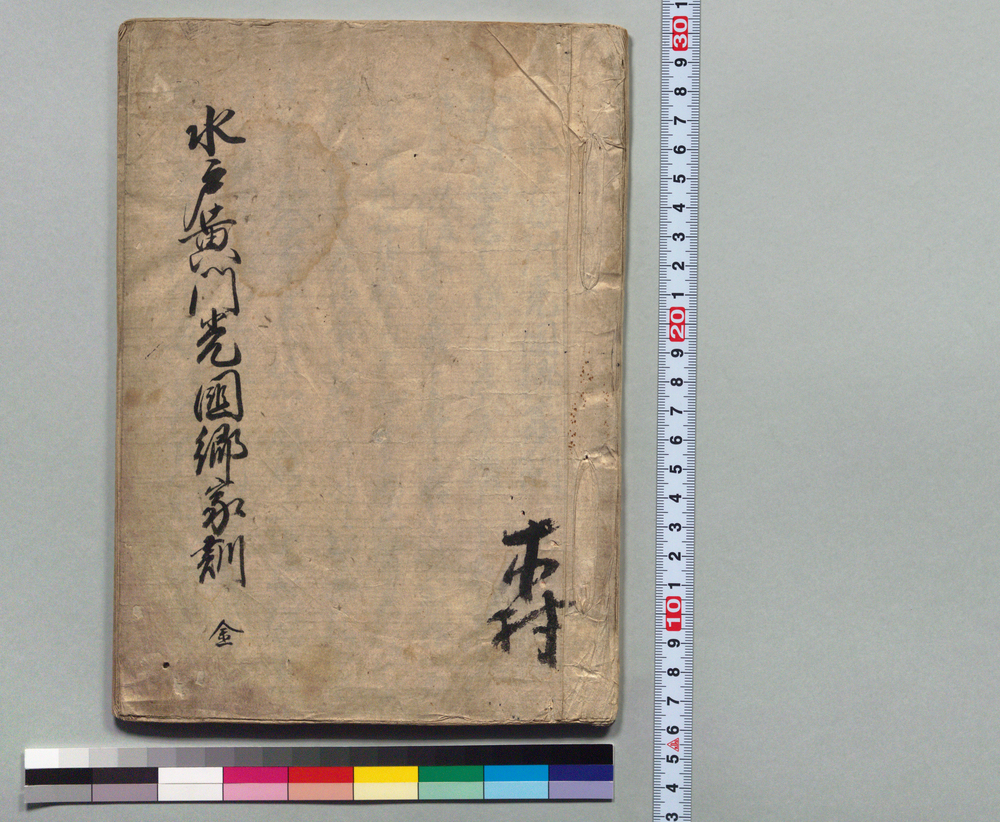 水戸黄門光圀郷家訓 金
市村
1
30
9
8
7
6
5
4
3
2
1
20
9
8
7
6
5
4
3
2
1
10
9
8
7
6
5
4
3